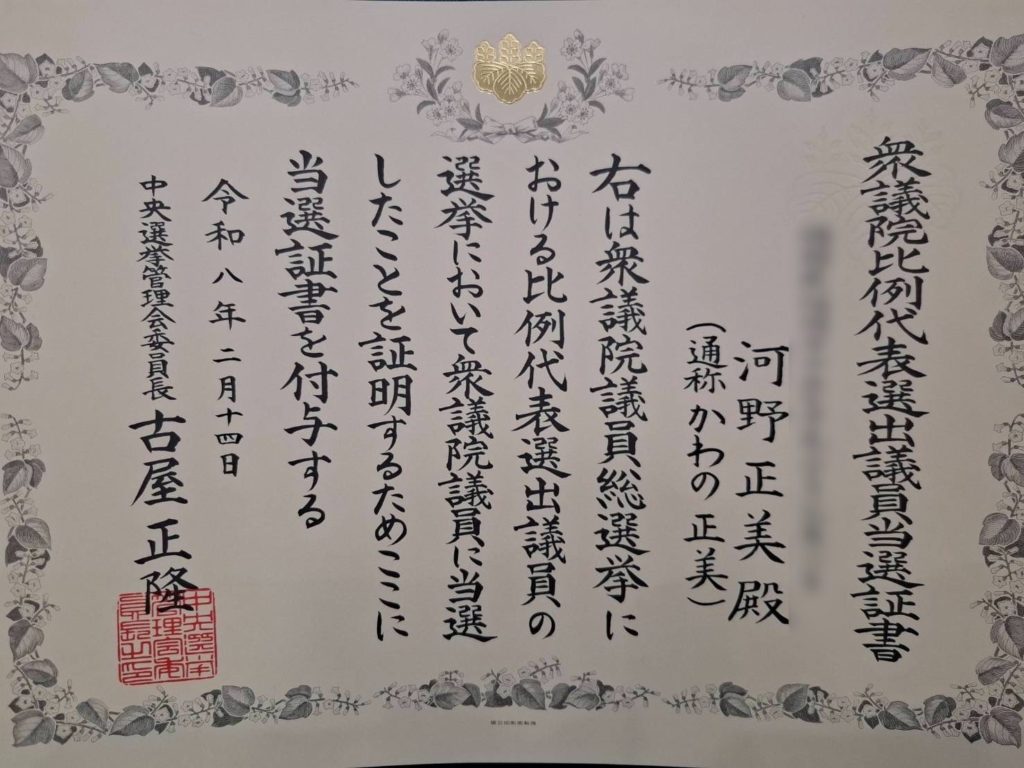 衆議院比例代表選出議員当選証書
河野正美殿
（通称 かわの 正美）
右は衆議院議員総選挙に
おける比例代表選出議員の
選挙において衆議院議員に当選
したことを証明するためここに
当選証書を付与する
令和八年二月十四日
中央選挙管理会委員長 古屋正隆